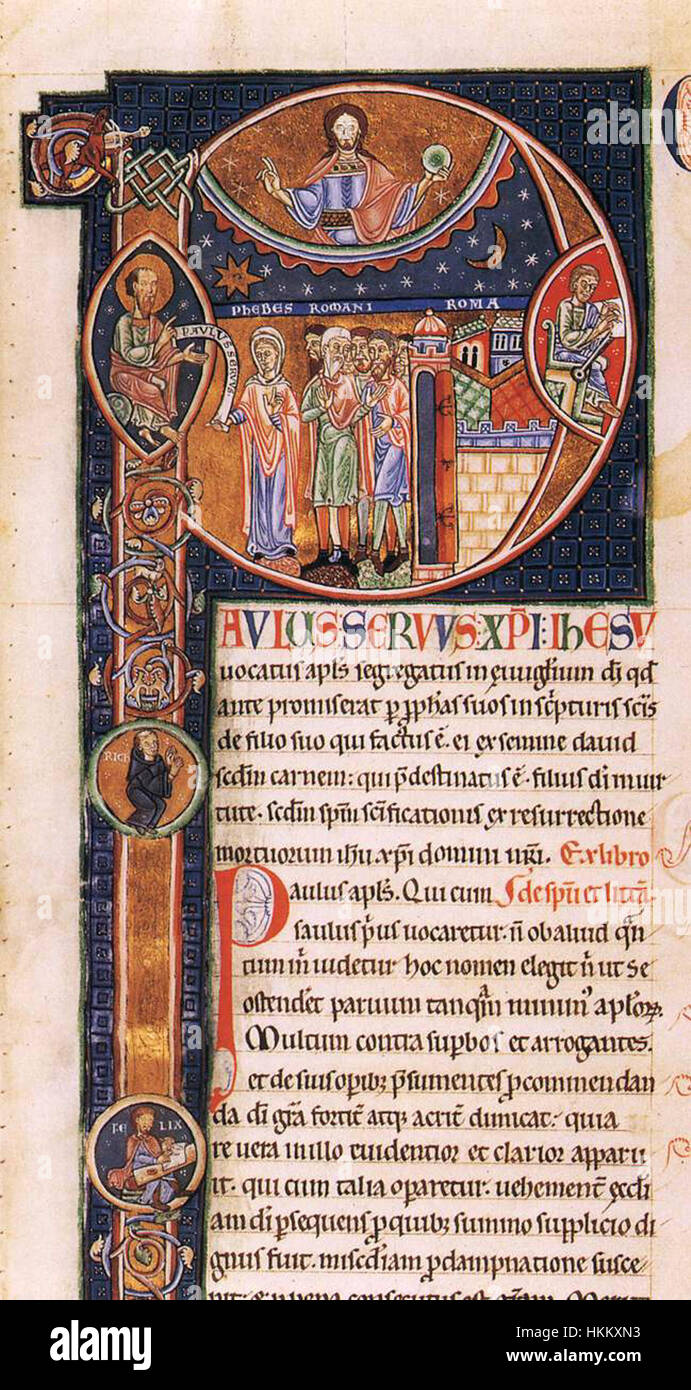 PHEBES ROMANI ROMA
PAULUS SERVUS
AVLUS SERVVS XP̄I IHESV
vocatus apl̄s segregatus in euvgl̄ium dī qd̄
ante promiserat p̱ p̱phas suos in sc̄pturis scīs
de filio suo qui factus ē ei ex semine david
scd̄m carnem: qui p̄destinatus ē filius dī in vir
tute scd̄m spm̄ scīficationis ex resurrectione
mortuorum ihū xp̄i domini nr̄i. Ex libro
RICH
Paulus apl̄s. Qui cum S de spū et litt̄a
saulus p̄us vocaretur n̄ ob aliud qn̄
tum m̄ videtur hoc nomen elegit n̄ ut se
ostendet̄ parvum tanqm̄ minim' aplo̱ꝝ.
Multum contra sup̱bos et arrogantes
et de suis opib; p̄sumentes p̱ commendan
da dī gr̄a fortit̄ atq; acrit̄ dimicat quia
FELIX
revera in illo evidentior et clarior apparu
it. qui cum talia operaretur vehement̄ eccl̄i
am dī p̱sequens p̱ quib; summo supplicio di
gnus fuit. misc̄diam p̱ dampnatione susce
alamy
Image ID: HKKXN3
www.alamy.com